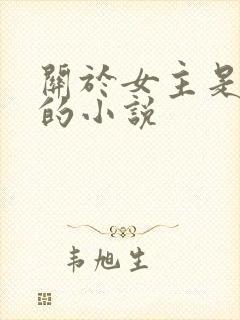 關於女主是
的小說
韦旭生